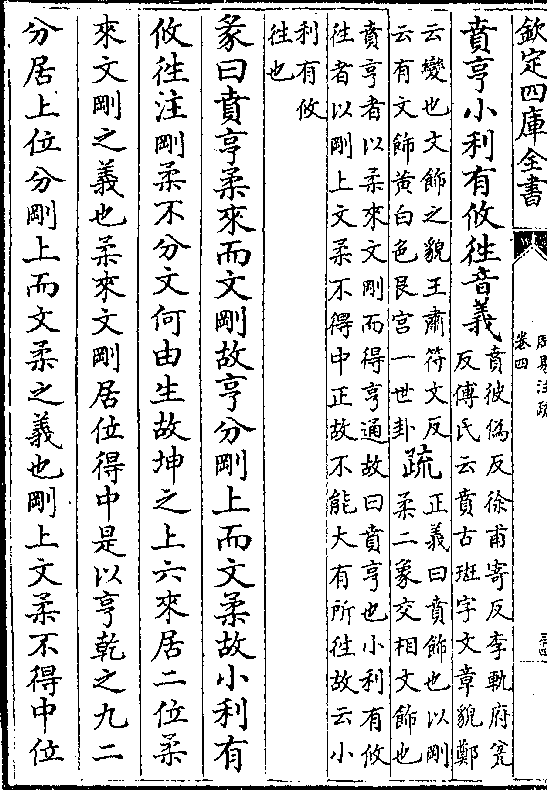 欽定四庫全書
周易注疏
卷四
三四
賁亨小利有攸徃音義
賁彼偽反徐甫寄反李軌府兖
反傅氏云賁古斑字文章貌鄭
云變也文飾之貌王肅符文反
云有文飾黄白色艮宫一世卦
疏
正義曰賁飾也以剛
柔二象交相文飾也
賁亨者以柔來文剛而得亨通故曰賁亨也小利有攸
徃者以剛上文柔不得中正故不能大有所徃故云小
利有攸
徃也
彖曰賁亨柔來而文剛故亨分剛上而文柔故小利有
攸徃注剛柔不分文何由生故坤之上六來居二位柔
來文剛之義也柔來文剛居位得中是以亨乾之九二
分居上位分剛上而文柔之義也剛上文柔不得中位